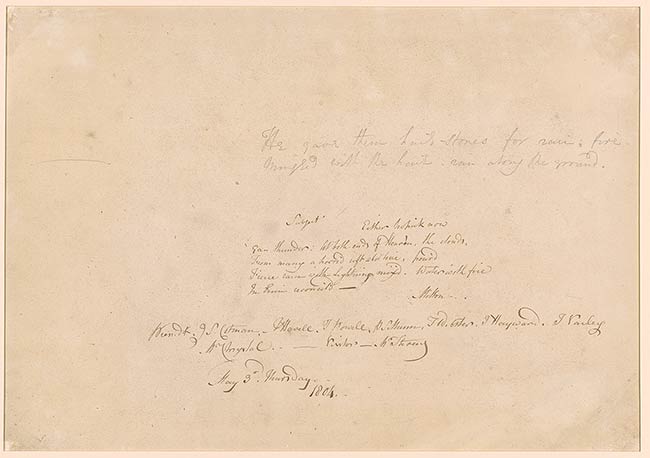 He gave them hail-stones for rain; fire
mingled with the hail ran along the ground.
Subject Either tropick now
'Gan thunder: at both ends of Heaven, the clouds,
From many a horrid rift abortive, pour'd
Fierce rain with lightning mix'd. Water with fire
In Ruin reconcil'd —
Milton
Present J S Cotman. P S Munn. T Webster. J Hayward. J Varley
Visitor —
May 3d. Thursday.
1804.